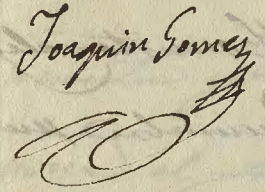 Joaquin Gomez